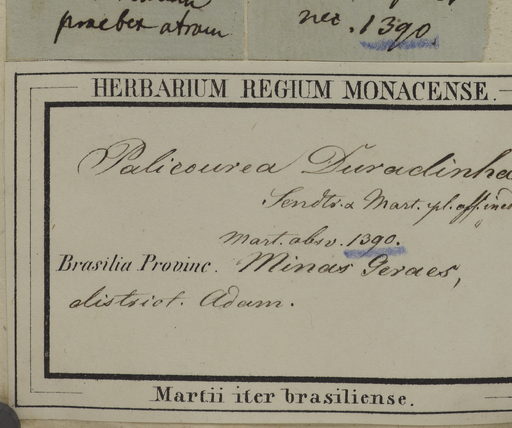 praebet atram
nec. 1390
HERBARIUM REGIUM MONACENSE.
Palicourea Duradinha
Sendtr. & Mart. pl. off. ined
Mart. obsv. 1390.
Brasilia Provinc. Minas Geraes,
district. Adam.
Martii iter brasiliense.